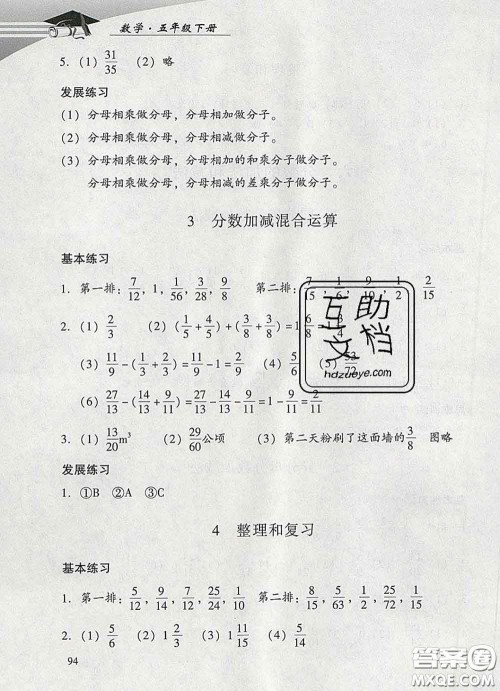 数学·五年级下册
5. (1) 31/35 (2) 略
发展练习
(1) 分母相乘做分母，分母相加做分子。
(2) 分母相乘做分母，分母相减做分子。
(3) 分母相乘做分母，分母相加的和乘分子做分子。
分母相乘做分母，分母相减的差乘分子做分子。
3 分数加减混合运算
基本练习
1. 第一排：7/12, 1, 1/56, 3/28, 9/8 第二排：7/15, 1/6, 9/10, 1/2 2/15
2. (1) 2/3 (2) (1/5+4/5)+(3/8+3/8)=1
(3) 11/9-(1/3+2/3)=11/9-1=2/9 (4) 5/6 (5) 53/72
(6) 27/13-(14/13+9/11)=27/13-14/13-9/11=1-9/11=2/11
3. (1) 13/20 m³ (2) 29/60 公顷 (3) 第二天粉刷了这面墙的3/8 图略
发展练习
1. ①B ②A ③C
4 整理和复习
基本练习
1. 第一排：5/12, 9/14, 7/12, 25/24, 1/10 第二排：8/15, 5/63, 5/12, 25/72, 1/15
2. (1) 5/6 (2) 1 2/3 (3) 1 11/15 (4) 5/14
94
互助文档
hdzuoye.com
答案圈
MXQE.COM